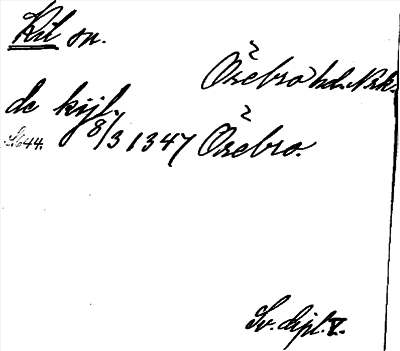 Kil sn.
Örebro hd. Nrk.
de kijl
8/3 1347 Örebro.
S. 644.
Sv. dipl. V.